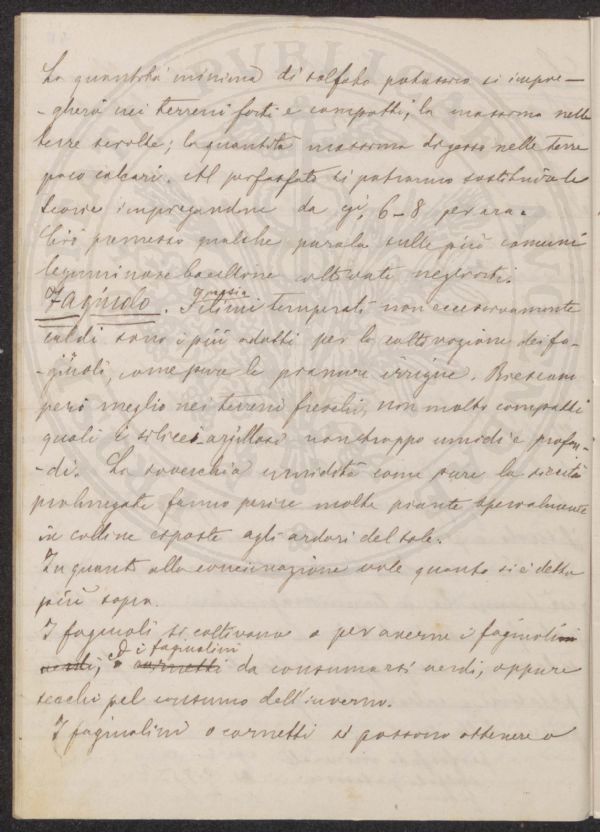 La quantità minima di solfato potassico si impie-
-gherà nei terreni forti e compatti, la massima nelle
terre sciolte; la quantità massima di gesso nelle terre
poco calcari. Al perfosfato si potranno sostituire le
scorie impiegandone da cg, 6-8 per ara.
Ciò premesso qualche parola sulle più comuni
leguminose baccelline coltivate negli orti.
Fagiuolo. I climi temperati non eccessivamente
caldi sono i più adatti per la coltivazione dei fa-
-giuoli, come pure le pianure irrigue. Crescono
però meglio nei terreni freschi, non molto compatti
quali i silicei-argillosi non troppo umidi e profon-
-di. La soverchia umidità come pure la siccità
prolungata fanno perire molte piante specialmente
in colline esposte agli ardori del sole.
In quanto alla concimazione vale quanto si è detto
più sopra.
I fagiuoli si coltivano o per averne i fagiuolini
verdi, o i fagiuolini cornetti da consumarsi verdi, oppure
secchi pel consumo dell'inverno.
I fagiuolini o cornetti si possono ottenere o